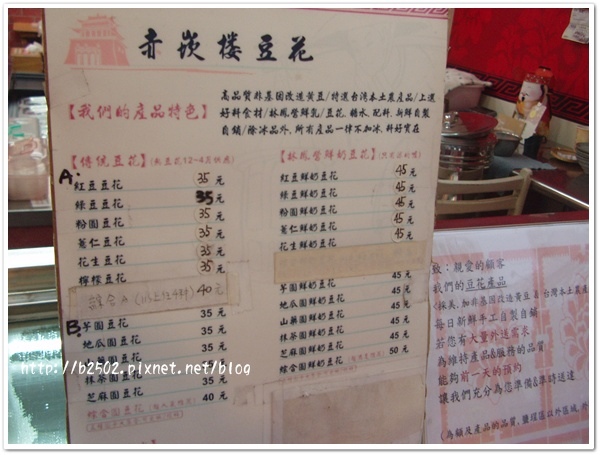 赤崁楼豆花
【我們的產品特色】
高品質非基因改造黃豆/特選台灣本土農產品/上選
好料食材/林鳳營鮮乳/豆花.糖水.配料.新鮮自製
自銷/除冰品外,所有產品一律不加冰.料好實在
【傳統豆花】
A.
紅豆豆花 35元
綠豆豆花 35元
粉圓豆花 35元
薏仁豆花 35元
花生豆花 35元
檸檬豆花 35元
綜合A 40元
B.
芋圓豆花 35
地瓜圓豆花 35
山藥圓豆花 35
抹茶圓豆花 35元
芝麻圓豆花 35元
綜合圓豆花 40元
【林鳳營鮮奶豆花】
紅豆鮮奶豆花 45元
綠豆鮮奶豆花 45元
粉圓鮮奶豆花 45元
薏仁鮮奶豆花 45元
花生鮮奶豆花 45元
芋圓鮮奶豆花 45元
地瓜圓鮮奶豆花 45元
山藥圓鮮奶豆花 45元
抹茶圓鮮奶豆花 45元
芝麻圓鮮奶豆花 45元
綜合圓鮮奶豆花 50元
致：親愛的顧客
我們的豆花產品
每日新鮮手工自製自銷
若您有大量外送需求
為維持產品&服務的品質
能夠前一天的預約
讓我們充分為您準備&準時送達
http://b2502.pixnet.net/blog